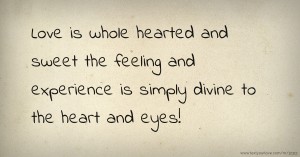 Love is whole hearted and
sweet the feeling and
experience is simply divine to
the heart and eyes!